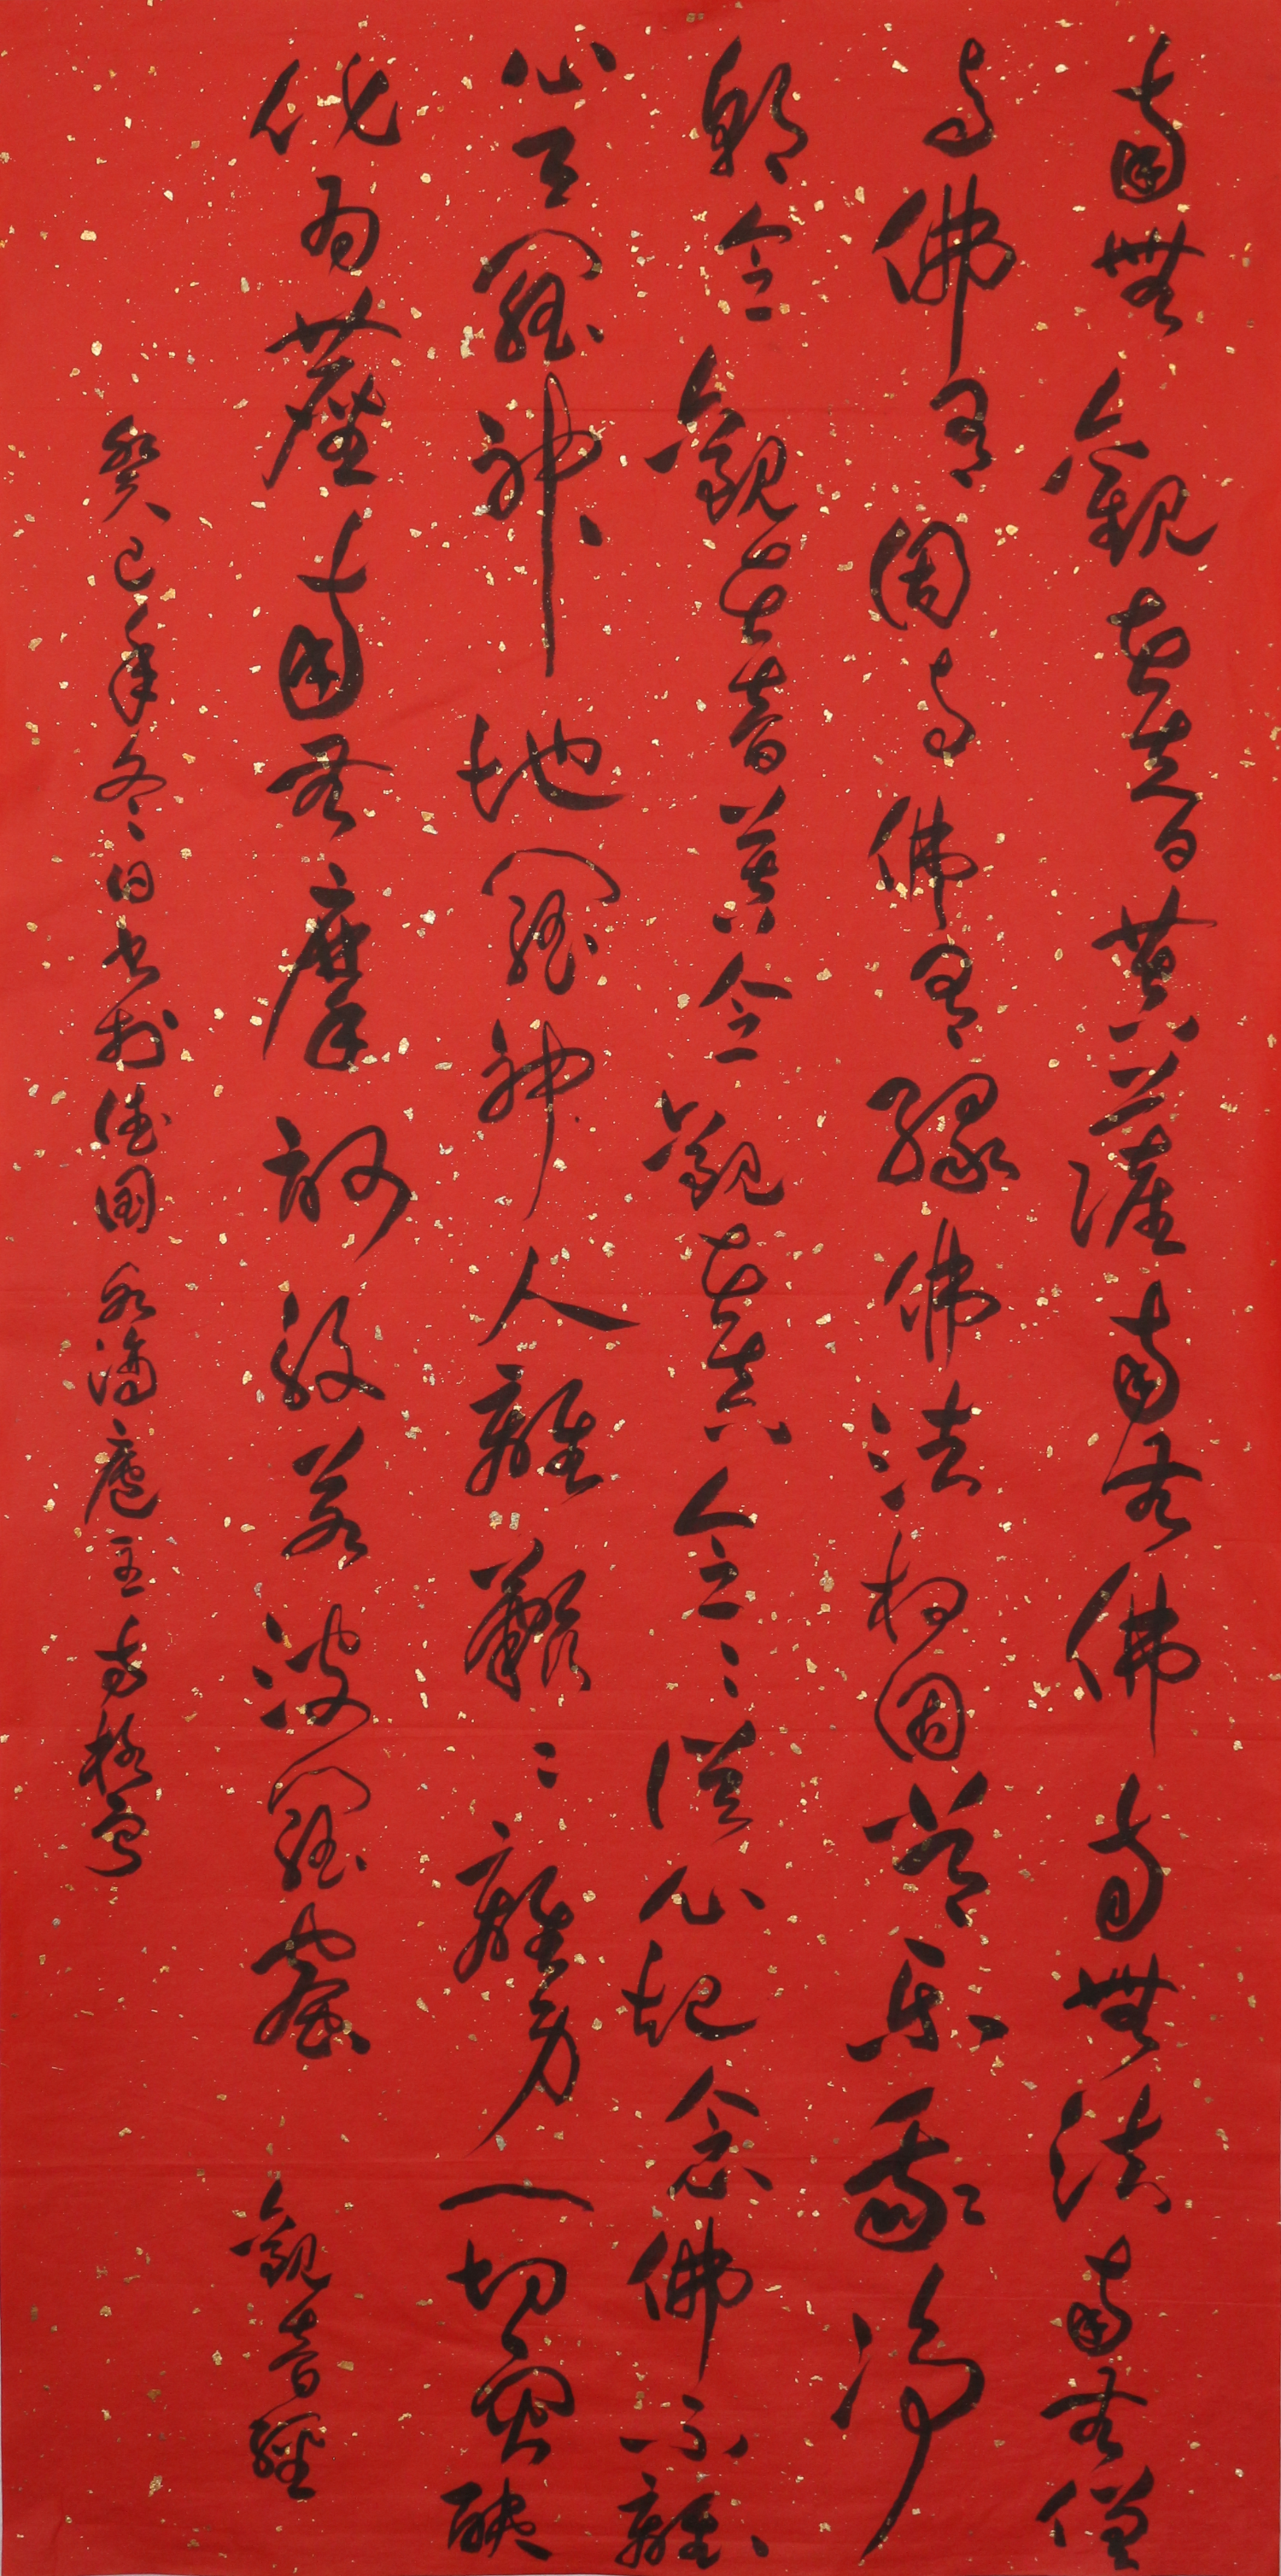 南無觀世音菩薩南无佛南無法南無僧
與佛有因與佛有緣佛法相因常樂我淨
朝念觀世音暮念觀世音念念從心起念佛不離
心天羅神地羅神人離難難離身一切災殃
化為塵南無摩訶般若波羅蜜 觀音經
癸巳年冬日書於德國 廬主